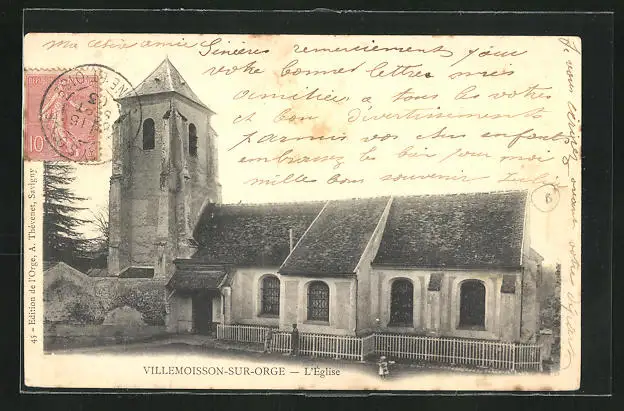 Ma chère amie Sincères remerciements pour
votre bonnes lettres mes
amitiées a tous les votres
et bon divertissements
parmis vos chers enfants
embrassez les bir pour moi
mille bon souvenir
je vous
avant votre départ
10
45 - Edition de l'Orge, A. Thévenet, Savigny
VILLEMOISSON-SUR-ORGE — L'Église